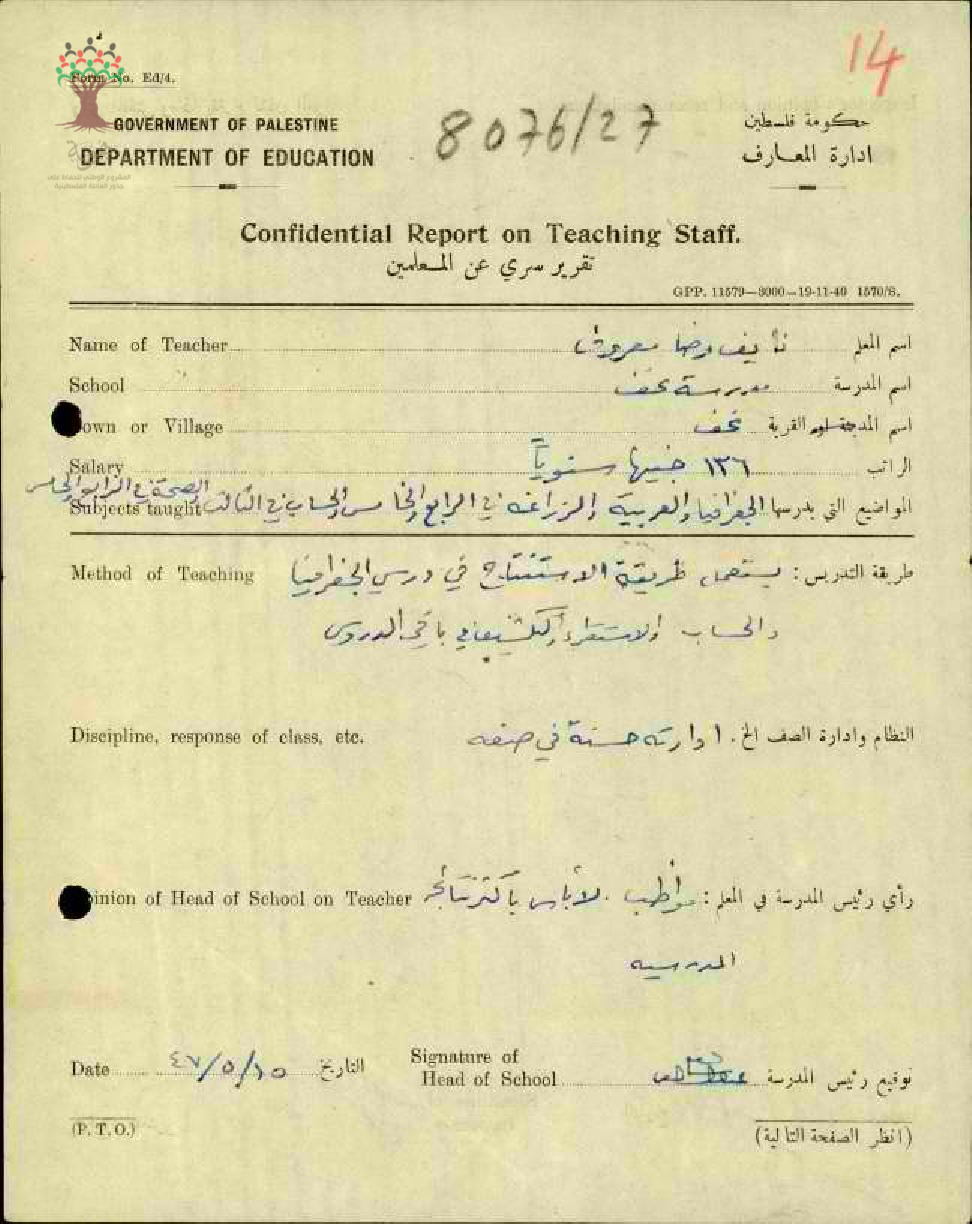 14
Form No. Ed/4.
GOVERNMENT OF PALESTINE
DEPARTMENT OF EDUCATION
8076/27
حكومة فلسطين
ادارة المعارف
Confidential Report on Teaching Staff.
تقرير سري عن المعلمين
GPP. 11579—3000—19-11-46 1570/S.
Name of Teacher نايف رضا اسم المعلم
School مدرسة نحف اسم المدرسة
Town or Village نحف اسم المدينة او القرية
Salary ١٣٦ جنيها سنوياً الراتب
Subjects taught المواضيع التي يدرسها الجغرافيا والعربية والزراعة في الرابع والخامس والحساب في الثالث والصحة في الرابع والخامس
Method of Teaching طريقة التدريس: يستعمل طريقة الاستنتاج في درسي الجغرافيا
والحساب والاستقراء في باقي الدروس
Discipline, response of class, etc. النظام وادارة الصف الخ. ادارته حسنة في صفه
Opinion of Head of School on Teacher رأي رئيس المدرسة في المعلم: مواظب. لا بأس
المدرسية
Date ١٥/٥/٤٧ التاريخ
Signature of
Head of School توقيع رئيس المدرسة
(P. T. O.) (انظر الصفحة التالية)